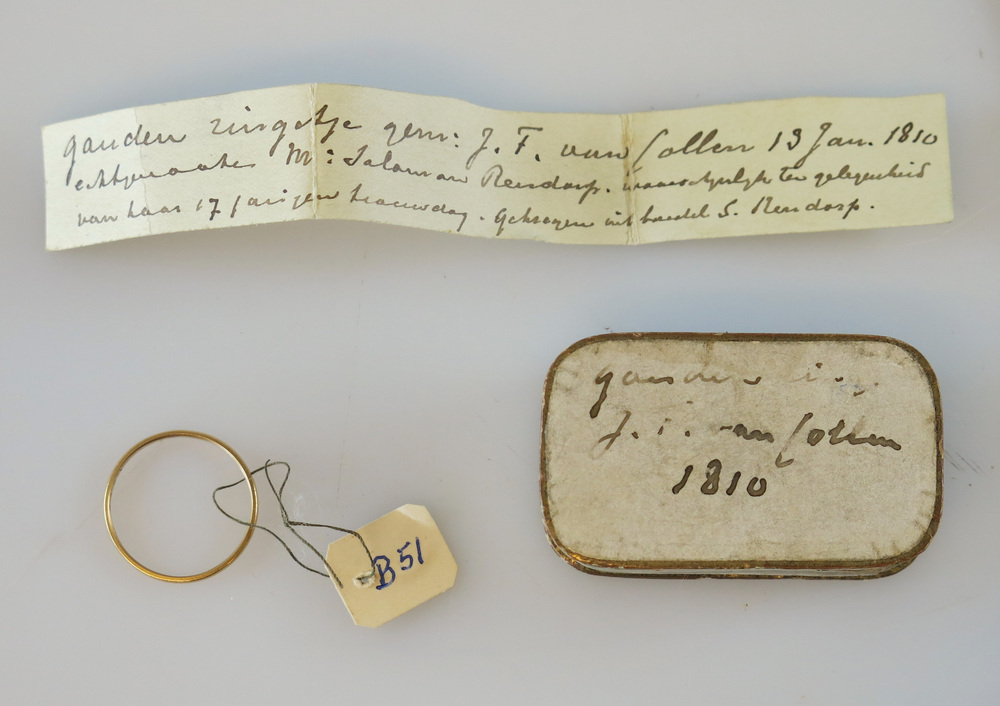 gouden ringetje gem: J. F. van Collen 13 Jan. 1810
echtgenoote Mr: Salomon Rendorp. waarschijnlijk ter gelegenheid
van haar 17 jarigen trouwdag. Gekregen uit boedel S. Rendorp.
gouden
J. F. van Collen
1810
B51